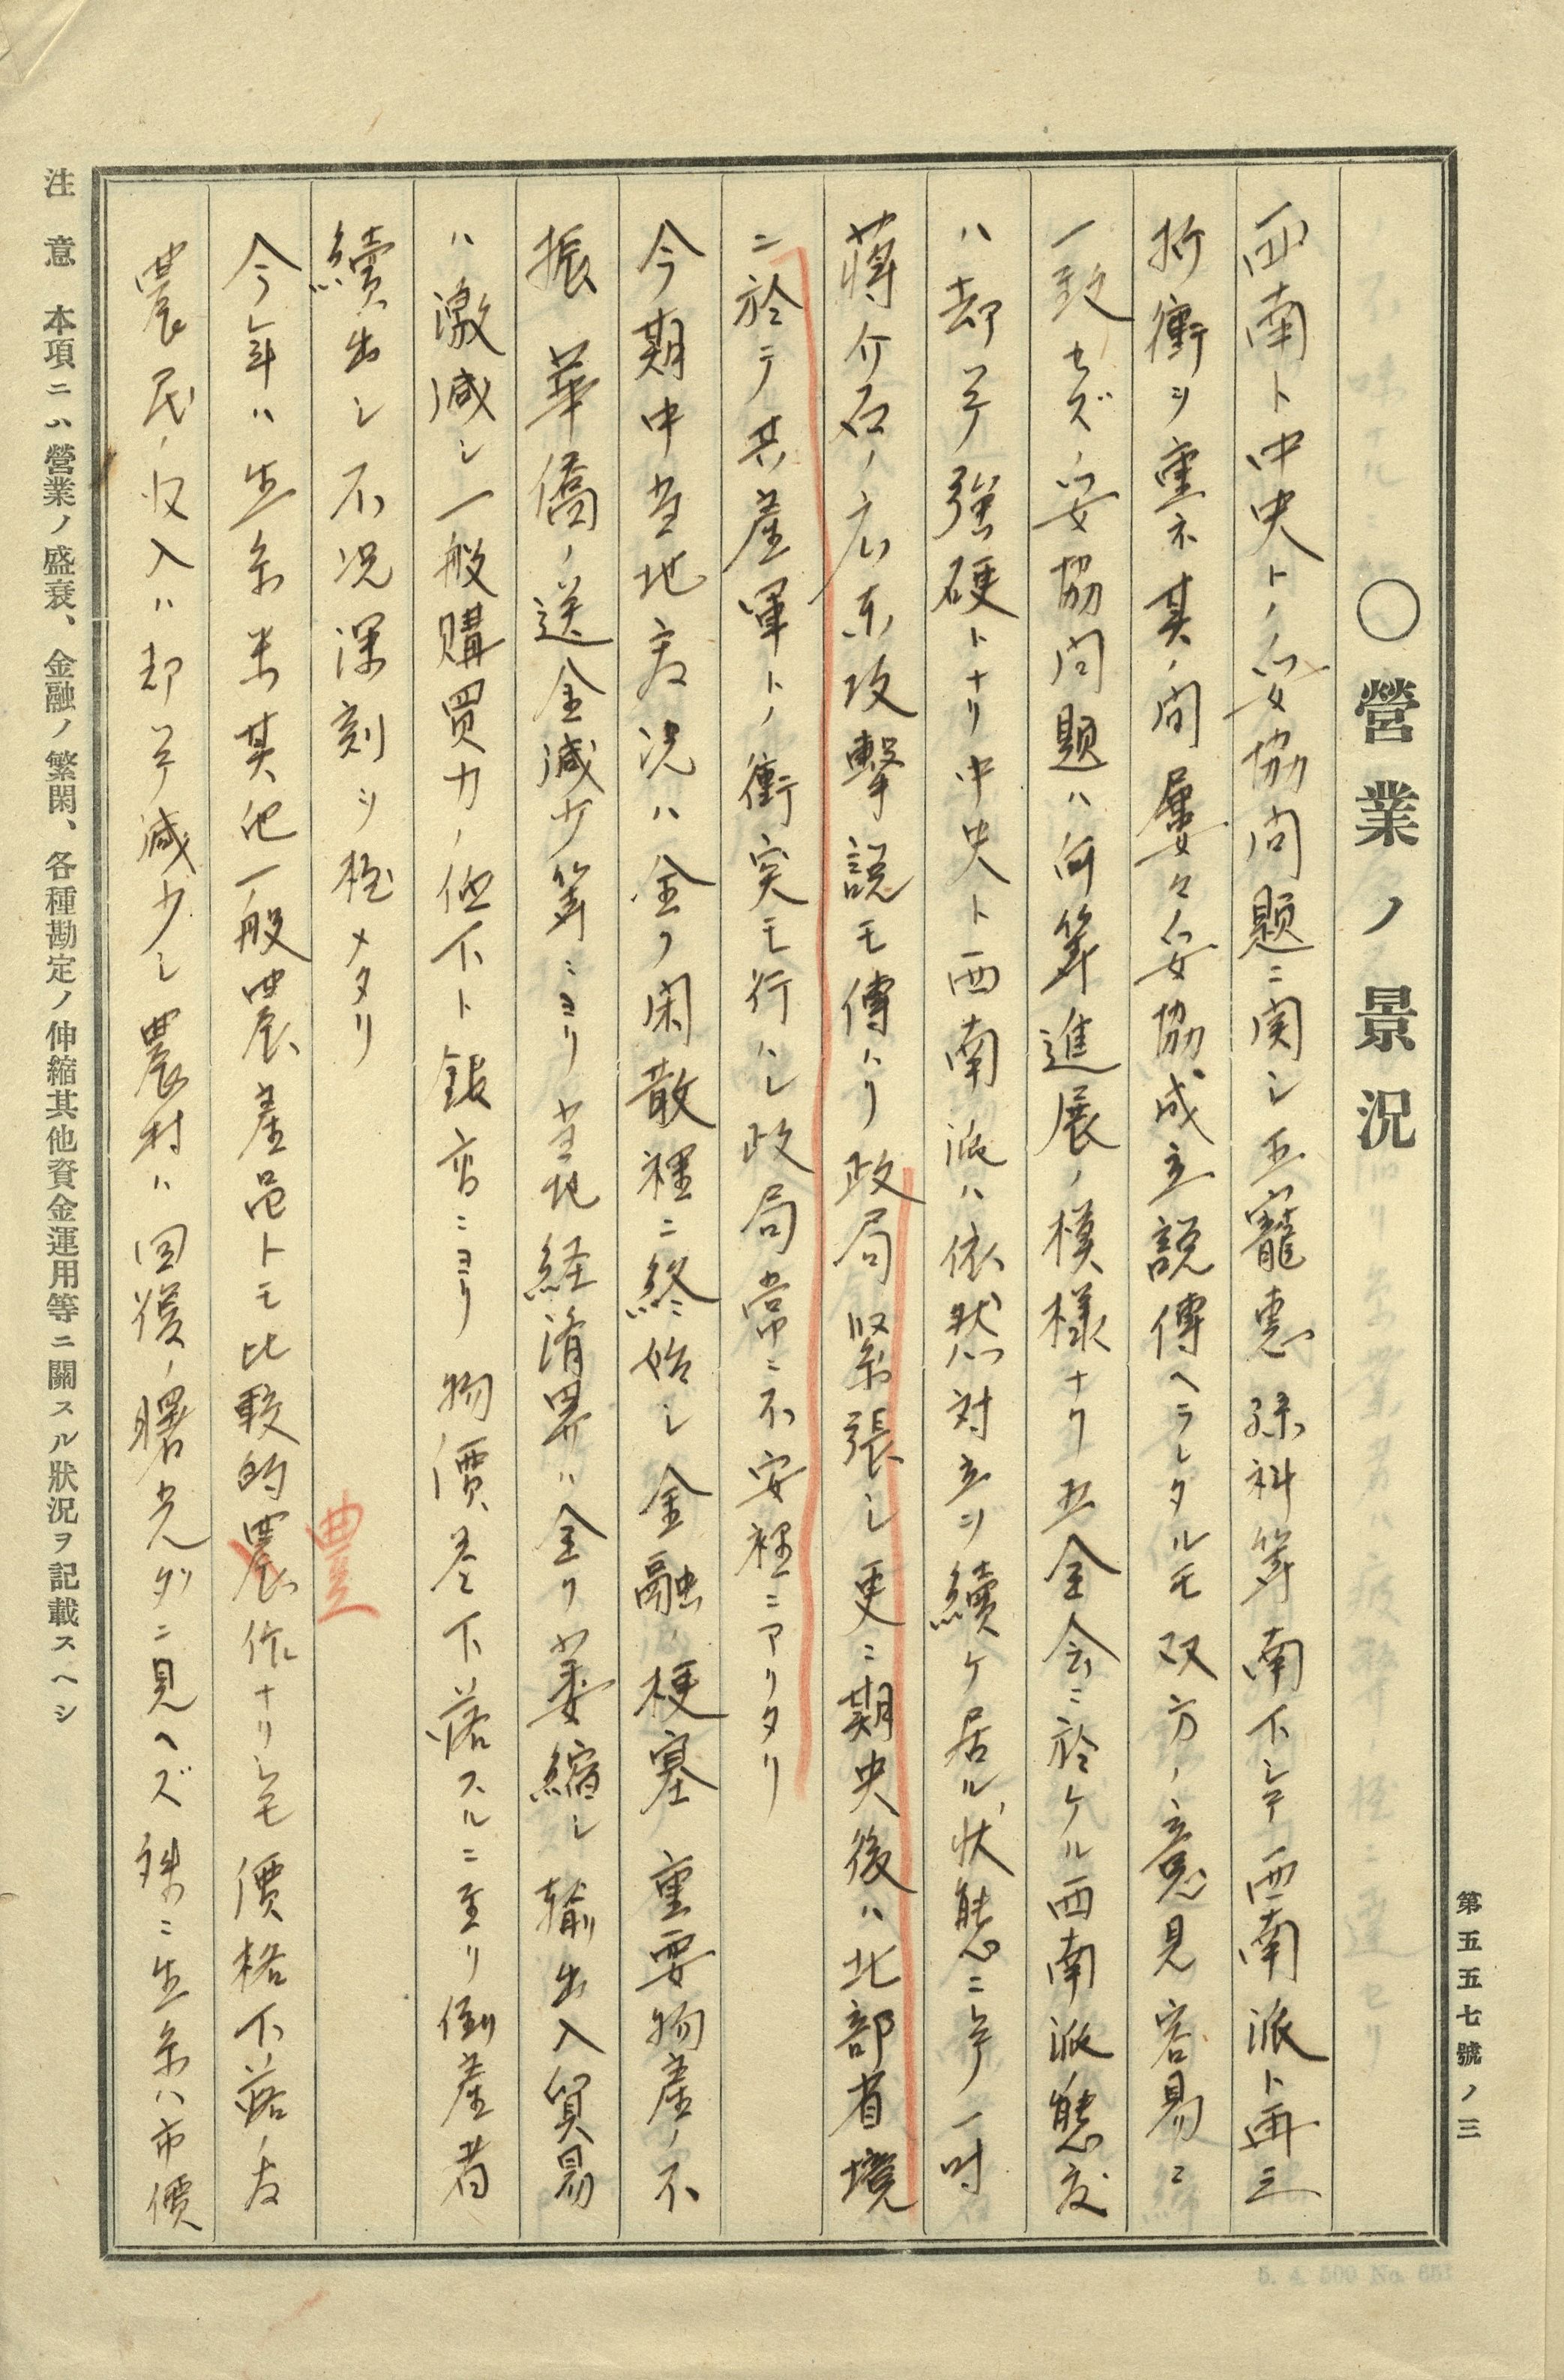 第五五七號ノ三
〇營業ノ景況
西南ト中央トノ妥協問題ニ関シ王寵惠孫科等南下シテ西南派ト再三
折衝ヲ重ネ其ノ間屡々妥協成立説傳ヘラレタルモ双方ノ意見容易ニ
一致セズ妥協問題ハ何等進展ノ模様ナク五全会ニ於ケル西南派態度
ハ却テ強硬トナリ中央ト西南派ハ依然対立ヲ續ケ居ル状態ニテ一時
蒋介石ノ広東攻撃説モ傳ハリ政局緊張シ更ニ期央後ハ北部省境
ニ於テ共産軍トノ衝突モ行ハレ政局常ニ不安裡ニアリタリ
今期中当地商況ハ全ク閑散裡ニ終始シ金融ノ梗塞重要物産ノ不
振華僑ノ送金減少等ニヨリ当地経済界ハ全ク萎縮シ輸出入貿易
ハ激減シ一般購買力ノ低下ト銀高ニヨリ物價益々下落スルニ至リ倒産者
續出シ不況深刻ヲ極メタリ
豊
今年ハ生糸米其他一般農産品トモ比較的農作ナリシモ價格下落ノ為
農民ノ収入ハ却テ減少シ農村ハ回復ノ曙光ダニ見ヘズ殊ニ生糸ハ市價
注意 本項ニハ營業ノ盛衰、金融ノ繁閑、各種勘定ノ伸縮其他資金運用等ニ關スル狀況ヲ記載スヘシ